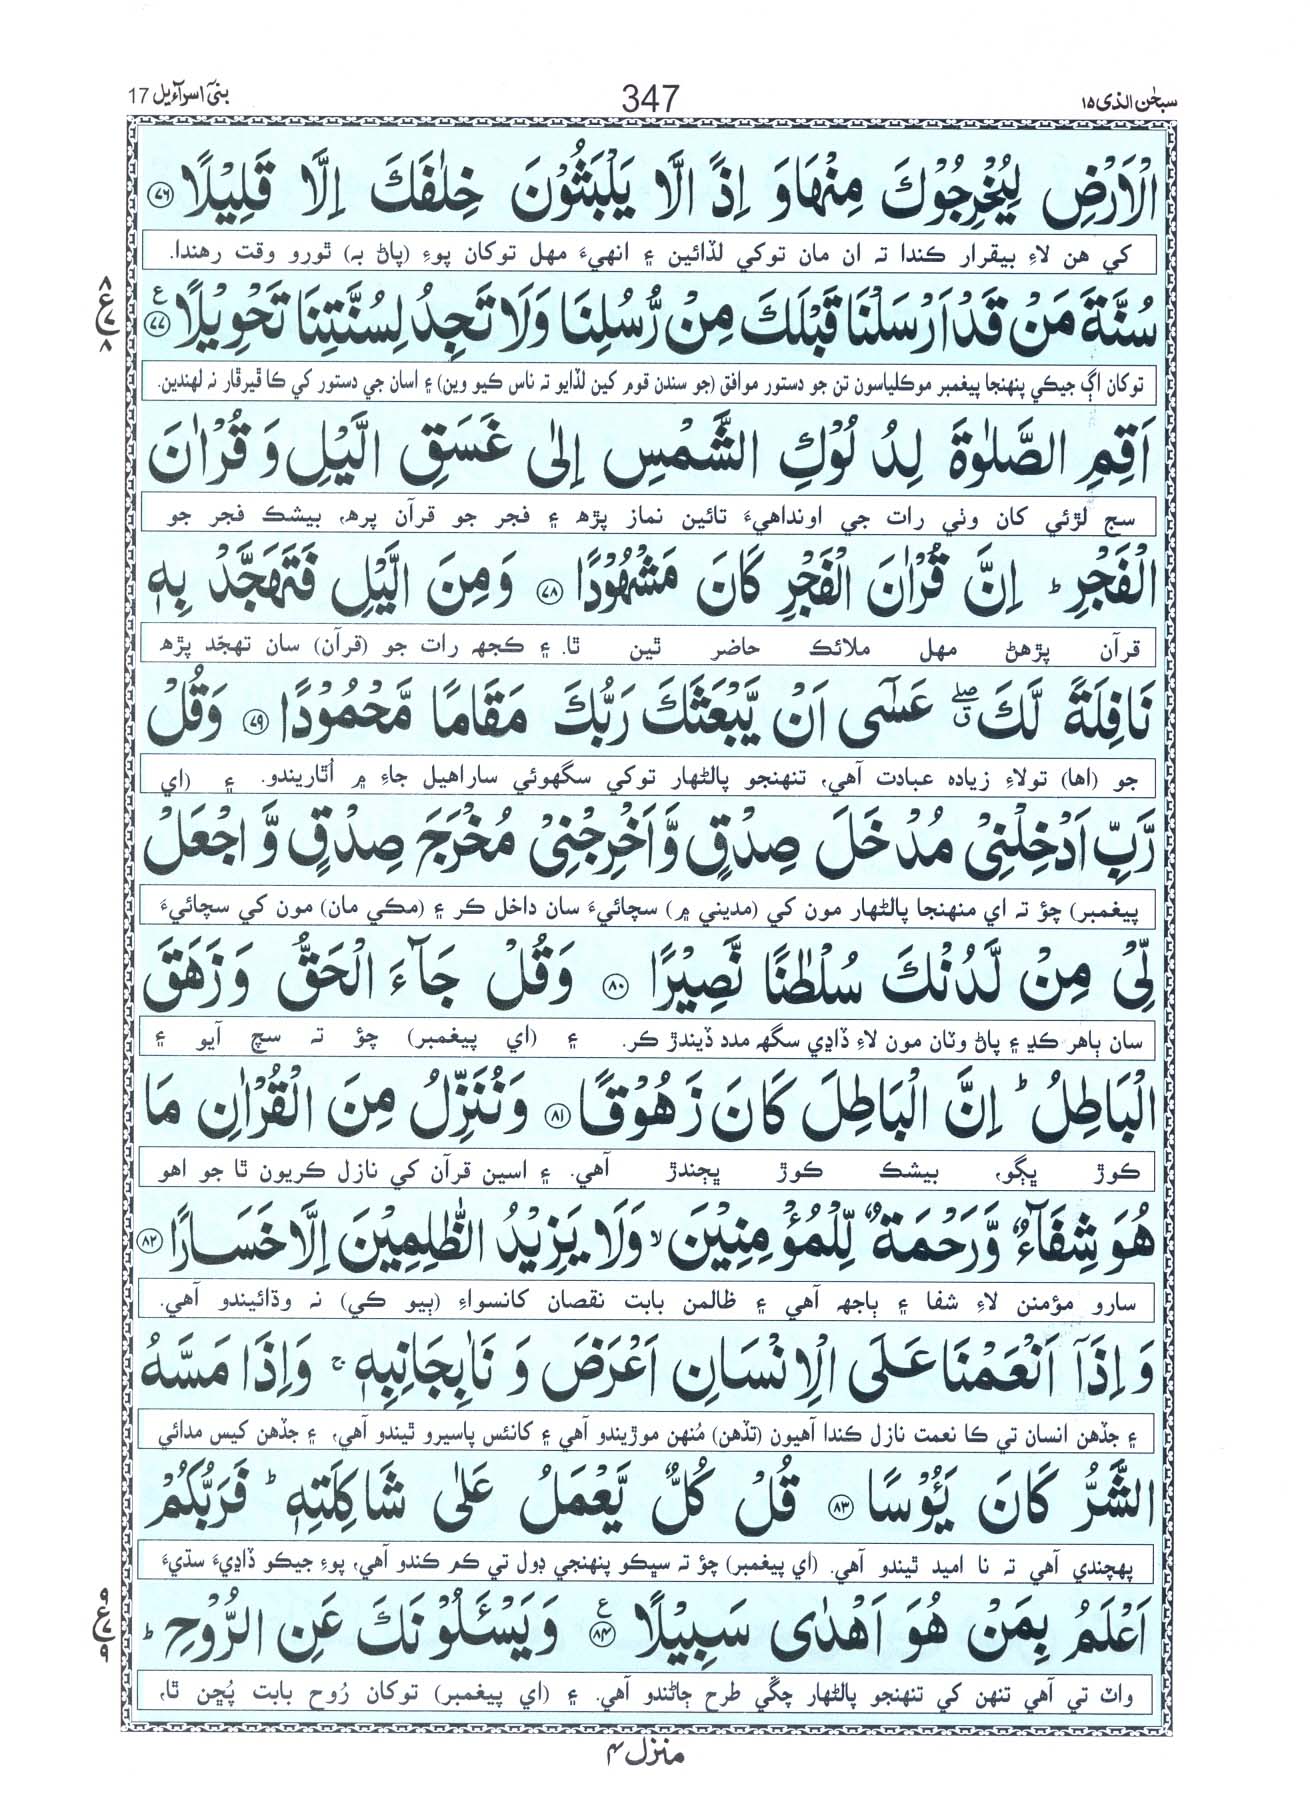 سبحٰن الذی ۱۵
347
بنیٓ اسرآءیل 17
الْاَرْضِ لِیُخْرِجُوْكَ مِنْهَا وَ اِذًا لَّا یَلْبَثُوْنَ خِلٰفَكَ اِلَّا قَلِیْلًا ﴿۷۶﴾
کي هن لاءِ بيقرار ڪندا ته ان مان توکي لڏائين ۽ انهيءَ مهل توکان پوءِ (پاڻ به) ٿورو وقت رهندا.
سُنَّةَ مَنْ قَدْ اَرْسَلْنَا قَبْلَكَ مِنْ رُّسُلِنَا وَلَا تَجِدُ لِسُنَّتِنَا تَحْوِیْلًا ﴿۷۷﴾ ع
۸ ع ۷ ۸
توکان اڳ جيڪي پنهنجا پيغمبر موڪلياسون تن جو دستور موافق (جو سندن قوم کين لڏايو ته ناس ڪيو وين) ۽ اسان جي دستور کي ڪا ڦيرڦار نہ لهندين.
اَقِمِ الصَّلٰوةَ لِدُلُوْكِ الشَّمْسِ اِلٰی غَسَقِ الَّیْلِ وَ قُرْاٰنَ
سج لڙئي کان وٺي رات جي اونداهيءَ تائين نماز پڙھ ۽ فجر جو قرآن پرھ، بيشڪ فجر جو
الْفَجْرِ ؕ اِنَّ قُرْاٰنَ الْفَجْرِ كَانَ مَشْهُوْدًا ﴿۷۸﴾ وَمِنَ الَّیْلِ فَتَهَجَّدْ بِهٖ
قرآن پڙهڻ مهل ملائڪ حاضر ٿين ٿا. ۽ ڪجهہ رات جو (قرآن) سان تهجّد پڙھ
نَافِلَةً لَّكَ ۖق عَسٰۤی اَنْ یَّبْعَثَكَ رَبُّكَ مَقَامًا مَّحْمُوْدًا ﴿۷۹﴾ وَقُلْ
جو (اها) تولاءِ زياده عبادت آهي، تنهنجو پالڻهار توکي سگهوئي ساراهيل جاءِ ۾ اُٿاريندو. ۽ (اي
رَّبِّ اَدْخِلْنِیْ مُدْخَلَ صِدْقٍ وَّاَخْرِجْنِیْ مُخْرَجَ صِدْقٍ وَّ اجْعَلْ
پيغمبر) چؤ ته اي منهنجا پالڻهار مون کي (مديني ۾) سچائيءَ سان داخل ڪر ۽ (مڪي مان) مون کي سچائيءَ
لِّیْ مِنْ لَّدُنْكَ سُلْطٰنًا نَّصِیْرًا ﴿۸۰﴾ وَقُلْ جَآءَ الْحَقُّ وَ زَهَقَ
سان ٻاهر ڪڍ ۽ پاڻ وٽان مون لاءِ ڏاڍي سگهہ مدد ڏيندڙ ڪر. ۽ (اي پيغمبر) چؤ ته سچ آيو ۽
الْبَاطِلُ ؕ اِنَّ الْبَاطِلَ كَانَ زَهُوْقًا ﴿۸۱﴾ وَنُنَزِّلُ مِنَ الْقُرْاٰنِ مَا
ڪوڙ ڀڳو، بيشڪ ڪوڙ ڀڄندڙ آهي. ۽ اسين قرآن کي نازل ڪريون ٿا جو اهو
هُوَ شِفَآءٌ وَّرَحْمَةٌ لِّلْمُؤْمِنِیْنَ ۙ وَلَا یَزِیْدُ الظّٰلِمِیْنَ اِلَّا خَسَارًا ﴿۸۲﴾
سارو مؤمنن لاءِ شفا ۽ ٻاجهہ آهي ۽ ظالمن بابت نقصان کانسواءِ (ٻيو ڪي) نہ وڌائيندو آهي.
وَ اِذَاۤ اَنْعَمْنَا عَلَی الْاِنْسَانِ اَعْرَضَ وَ نَاٰ بِجَانِبِهٖ ۚ وَاِذَا مَسَّهُ
۽ جڏهن انسان تي ڪا نعمت نازل ڪندا آهيون (تڏهن) مُنهن موڙيندو آهي ۽ کانئس پاسيرو ٿيندو آهي، ۽ جڏهن کيس مدائي
الشَّرُّ كَانَ یَـُٔوْسًا ﴿۸۳﴾ قُلْ كُلٌّ یَّعْمَلُ عَلٰی شَاكِلَتِهٖ ؕ فَرَبُّكُمْ
پهچندي آهي ته نا اميد ٿيندو آهي. (اي پيغمبر) چؤ ته سڀڪو پنهنجي ڊول تي ڪم ڪندو آهي، پوءِ جيڪو ڏاڍيءَ سڌيءَ
اَعْلَمُ بِمَنْ هُوَ اَهْدٰی سَبِیْلًا ﴿۸۴﴾ ع وَیَسْـَٔلُوْنَكَ عَنِ الرُّوْحِ ؕ
۹ ع ۷ ۹
واٽ تي آهي تنهن کي تنهنجو پالڻهار چڱي طرح ڄاڻندو آهي. ۽ (اي پيغمبر) توکان رُوح بابت پُڇن ٿا،
منزل ۴